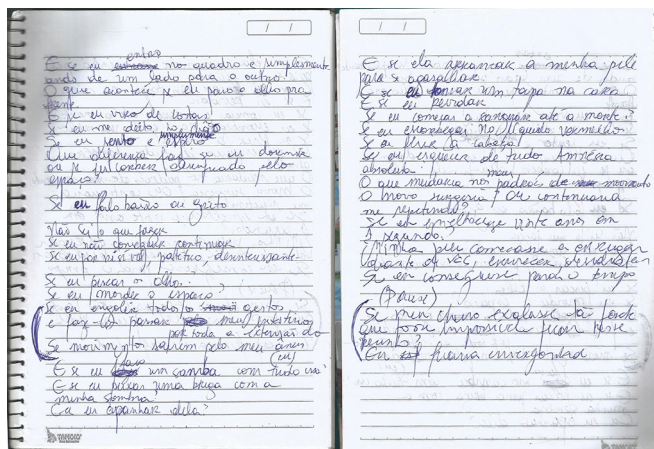 E se eu entro no quadro e simplesmente
ando de um lado para o outro?
O que acontece se eu paro e olho pra
frente
E se eu viro de costas
Se eu me deito no chão
Se eu sento e simplesmente espero
Que diferença faz se eu
espaço?
Se eu falo baixo ou grito
Não sei o que fazer
Se eu não conseguir continuar
Se eu for risível, patético, desinteressante
Se eu piscar o olho
Se eu morder o espaço
Se eu engolir todos os gestos
e fazê-los passar meu
por toda a extensão do
Se movimentos saírem pelo meu ânus
E se eu faço um samba com tudo isso
E se eu puxar uma briga com a
minha sombra?
Eu apanhar dela?
TAMOIO
E se ela arrancar a minha pele
para se agasalhar
E se eu tomar um tapa na cara
E se eu
Se eu começar a sangrar até a morte?
Se eu encharcar no líquido vermelho
Se eu a cabeça
Se eu esquecer de tudo Amnésia
absoluta.
O que mudaria nos meus padrões de movimento
O novo surgiria? Ou continuaria
me repetindo?
Se eu envelhecesse vinte anos em
1 segundo.
Minha pele começasse a enrugar
diante de vcs,
Se eu conseguisse parar o tempo
(Pausa)
Se meu cheiro exalasse tão forte
que fosse impossível ficar nesse
recinto?
Eu ficaria envergonhada
TAMOIO